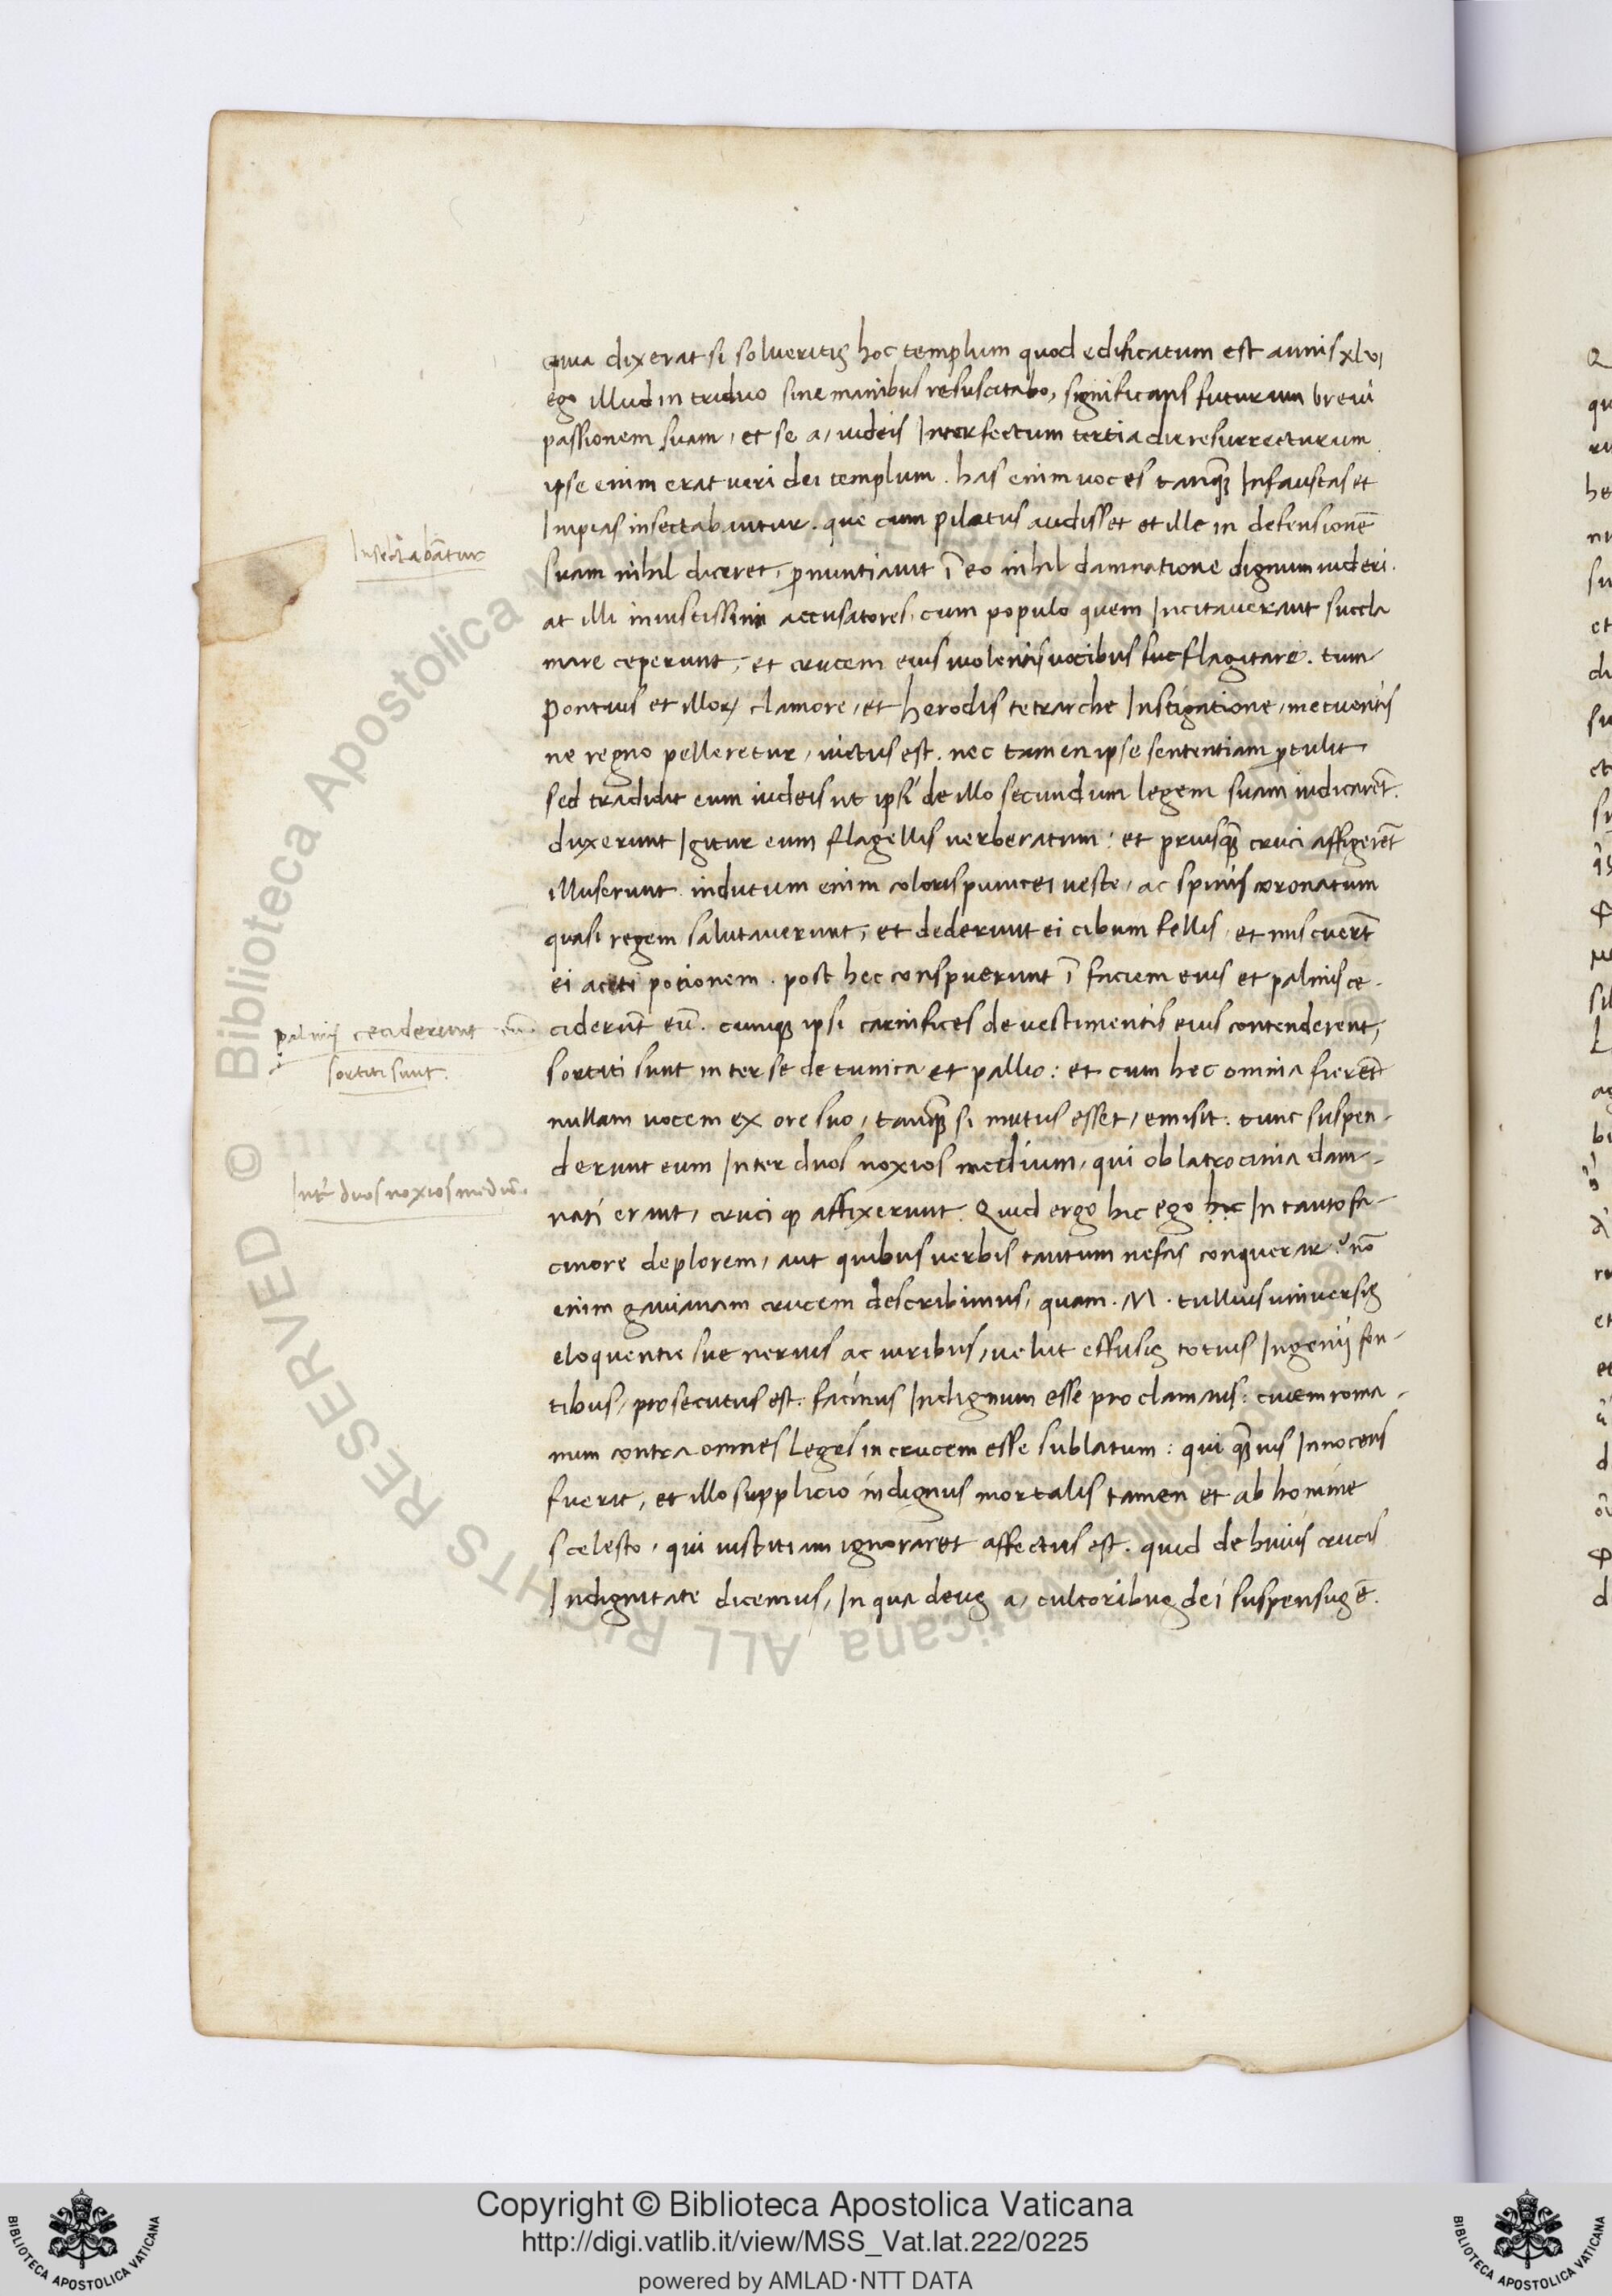 quia dixerat si solueritis hoc templum quod edificatum est annis xlvi
ego illud in triduo sine manibus resuscitabo, significans futuram breui
passionem suam, et se a, iudeis Interfectum tertia die resurrecturum
ipse enim erat ueri dei templum. has enim uoces tanq̃ Infaustas et
Impias insectabantur. que cum pilatus audisset et ille in defensionẽ
suam nihil diceret, ꝓnuntiauit ĩ eo nihil damnatione dignum uideri.
at illi iniustissimi accusatores, cum populo quem Incitauerant succla
mare ceperunt, et crucem eius uiolentis uocibus flagitare. tum
Pontius et illoꝝ clamore, et herodis tetrarche Instigatione, metuentis
ne regno pelleretur, uictus est. nec tamen ipse sententiam ꝓtulit
sed tradidit eum iudeis ut ipsi de illo secundum legem suam iudicarẽt.
duxerunt Igitur eum flagellis uerberatum: et priusq̃ cruci affigerẽt
illuserunt. indutum enim coloris punicei ueste, ac spinis coronatum
quasi regem salutauerunt, et dederunt ei cibum fellis, et miscuerũt
ei aceti potionem. post hec conspuerunt ĩ faciem eius et palmis ce-
ciderũt eũ. cumqꝫ ipsi carnifices de uestimentis eius contenderent,
sortiti sunt inter se de tunica et pallio: et cum hec omnia fierẽt
nullam uocem ex ore suo, tanq̃ si mutus esset, emisit. tunc suspen-
derunt eum Inter duos noxios medium, qui ob latrocinia dam-
nati erant, cruci qꝫ affixerunt. Quid ergo hic ego hic In tanto fa-
cinore deplorem, aut quibus uerbis tantum nefas conquerar? nõ
enim gauianam crucem describimus, quam .M. tullius uniuersis
eloquentie sue neruis ac uiribus, uelut effusis totius Ingenij fon-
tibus, prosecutus est. facinus Indignum esse proclamans: ciuem roma-
num contra omnes leges in crucem esse sublatum: qui q̃uis Innocens
fuerit, et illo supplicio indignus mortalis tamen et ab homine
scelesto, qui iustitiam ignoraret affectus est. quid de huius crucis
Indignitate dicemus, In qua deus a, cultoribus dei suspensus ẽ.
Insectabãtur
palmis ceciderunt eũ.
sortiti sunt.
Int̃ duos noxios mediũ.
© Biblioteca Apostolica Vaticana ALL RIGHTS RESERVED
Copyright © Biblioteca Apostolica Vaticana
http://digi.vatlib.it/view/MSS_Vat.lat.222/0225
powered by AMLAD·NTT DATA
BIBLIOTECA APOSTOLICA VATICANA
BIBLIOTECA APOSTOLICA VATICANA